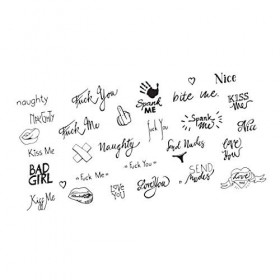 naughty
Fuck You
Spank
ME
Nice
bite me.
Kiss
ME
NAUGHTY
Fuck Me
fuck You
Spank
ME
Nice
Kiss Me
Naughty
Send Nudes
Love
You
BAD
GIRL
"Fuck Me"
"Fuck You"
SEND
Nudes
Kiss Me
LOVE
YOU
Love You
Love